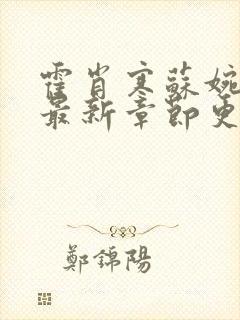 霍肖寒蘇婉
最新章節更
鄭錦陽